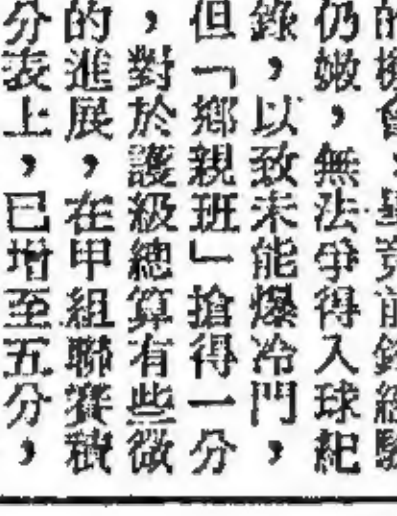 的機會，畢竟前鋒經驗
仍嫩，無法爭得入球紀
錄，以致未能爆冷門，
但「鄉親班」搶得一分
，對於護級總算有些微
的進展，在甲組聯賽積
分表上，已增至五分，